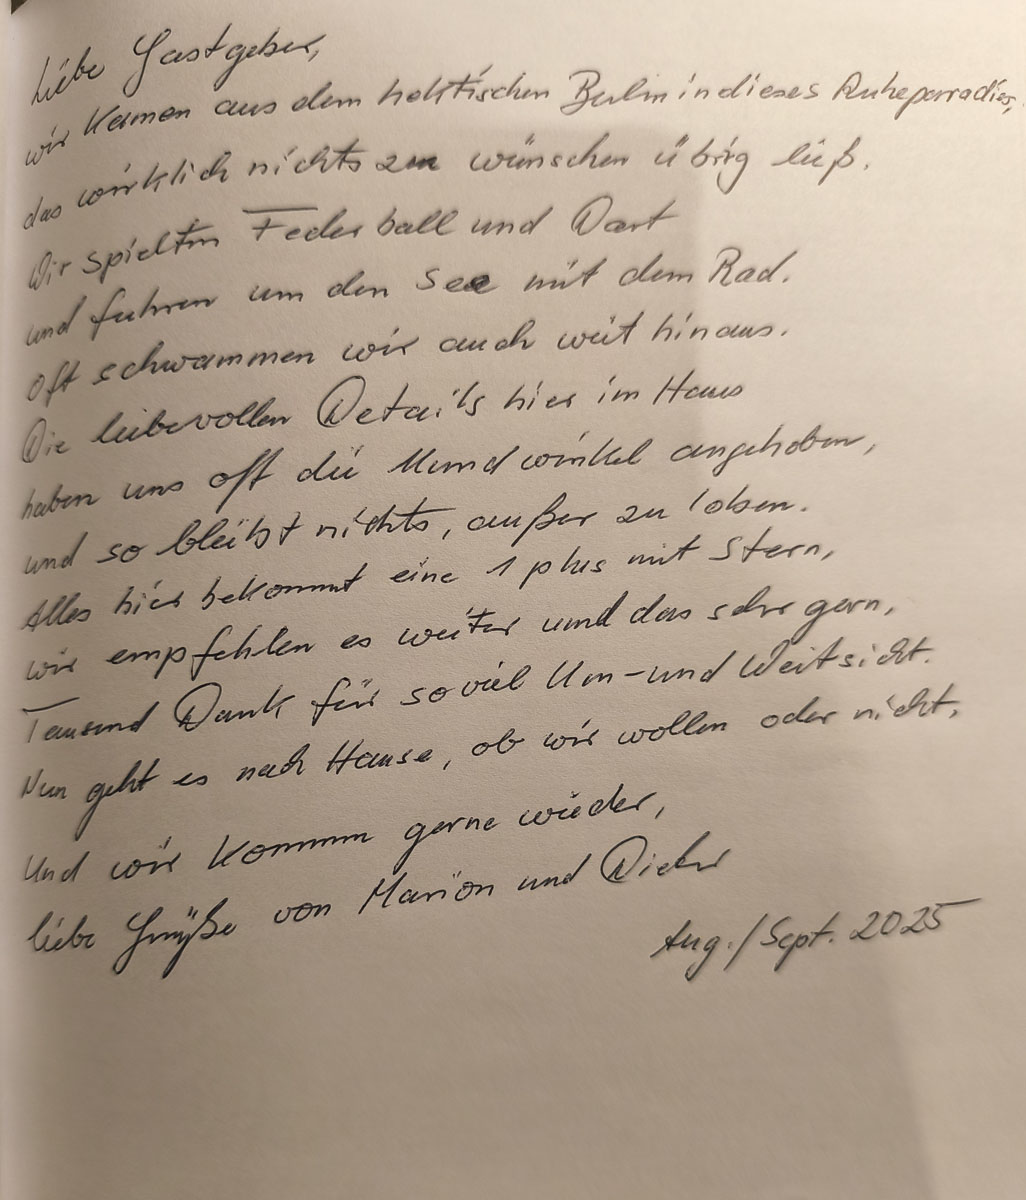 Liebe Gastgeber,
wir kamen aus dem hektischen Berlin in dieses Ruheparradies,
das wirklich nichts zu wünschen übrig ließ.
Wir spielten Federball und Dart
und fuhren um den See mit dem Rad.
Oft schwammen wir auch weit hinaus.
Die liebevollen Details hier im Haus
haben uns oft die Mundwinkel angehoben,
und so bleibt nichts, außer zu loben.
Alles hier bekommt eine 1 plus mit Stern,
wir empfehlen es weiter und das sehr gern,
Tausend Dank für soviel Um-und Weitsicht.
Nun geht es nach Hause, ob wir wollen oder nicht.
Und wir kommen gerne wieder,
liebe Grüße von Marion und Dieter
Aug./Sept. 2025